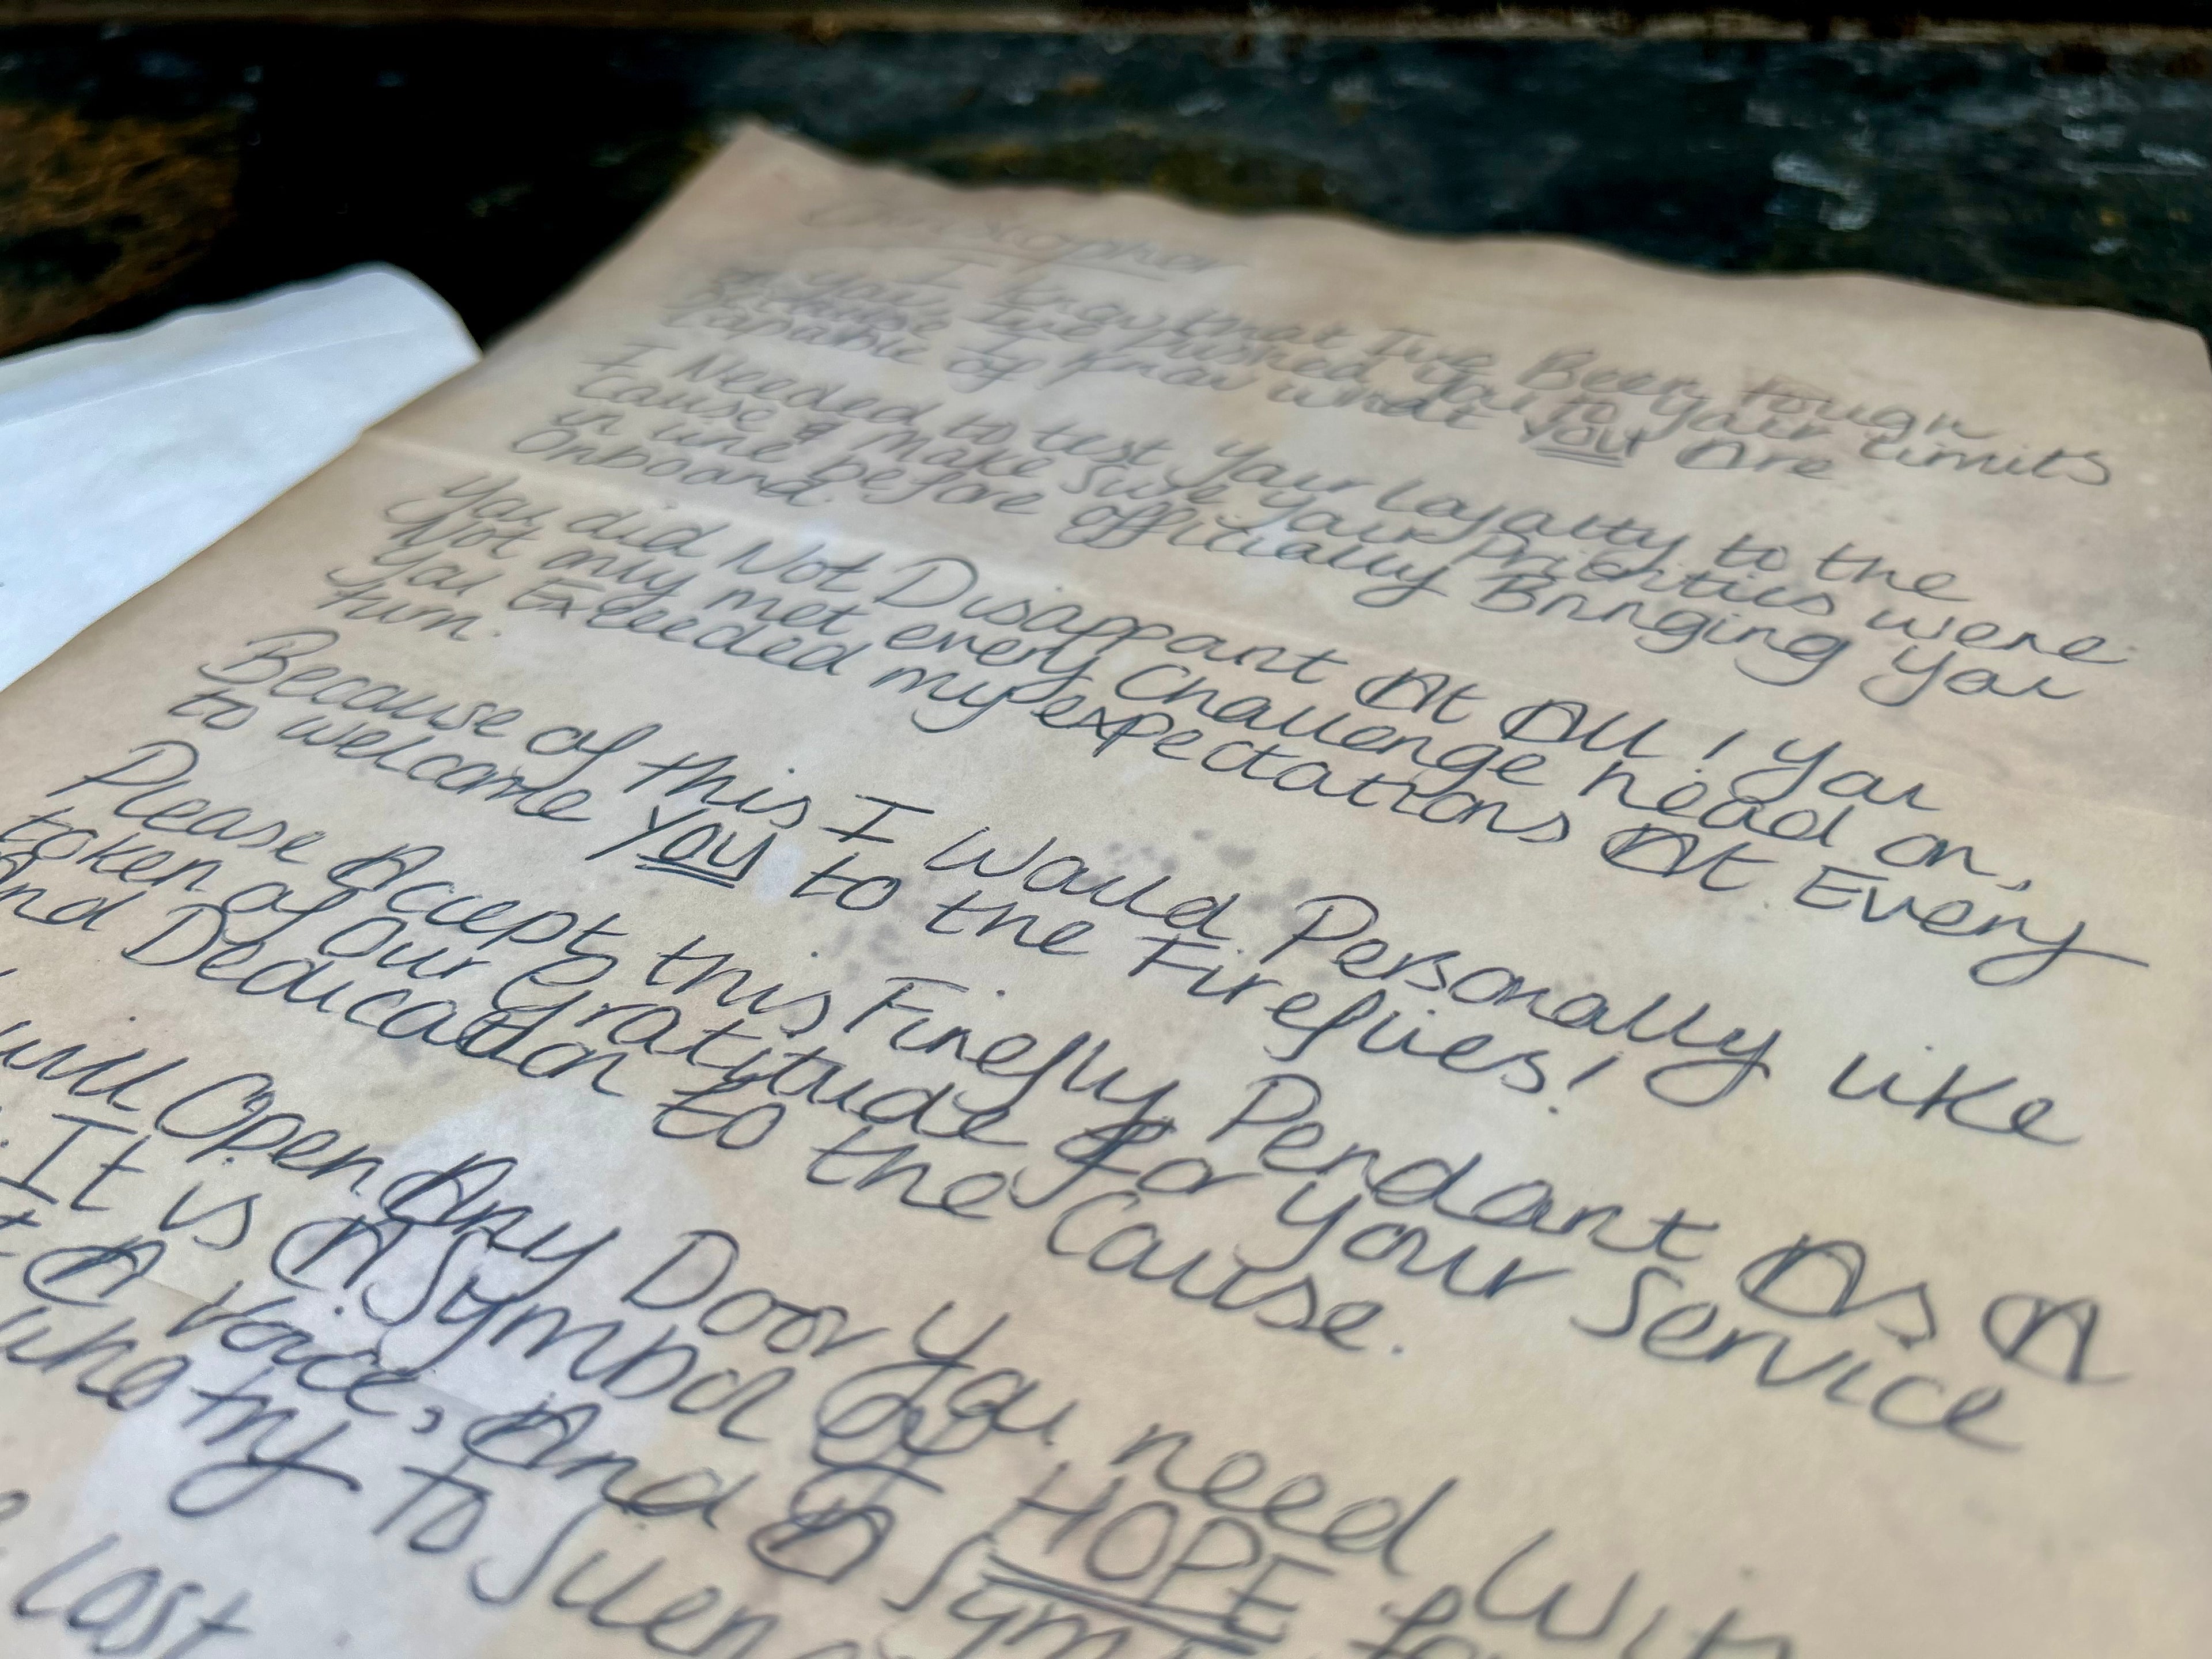 Christopher
I know that I've Been tough
on you, I've pushed you to your limits
Because I know what you Are
capable of
I Needed to test your loyalty to the
Cause & make sure your Priorities were
in line before officially Bringing you
Onboard.
You did Not Disappoint At All! You
Not only met every Challenge head on,
You Exceeded my expectations At Every
turn.
Because of this I Would Personally like
to welcome you to the Fireflies!
Please Accept this Firefly Pendant As A
token of our gratitude for your Service
And Dedication to the Cause.
will Open Any Door you need With
It is A Symbol of HOPE
A Voice, And A
who try to
last